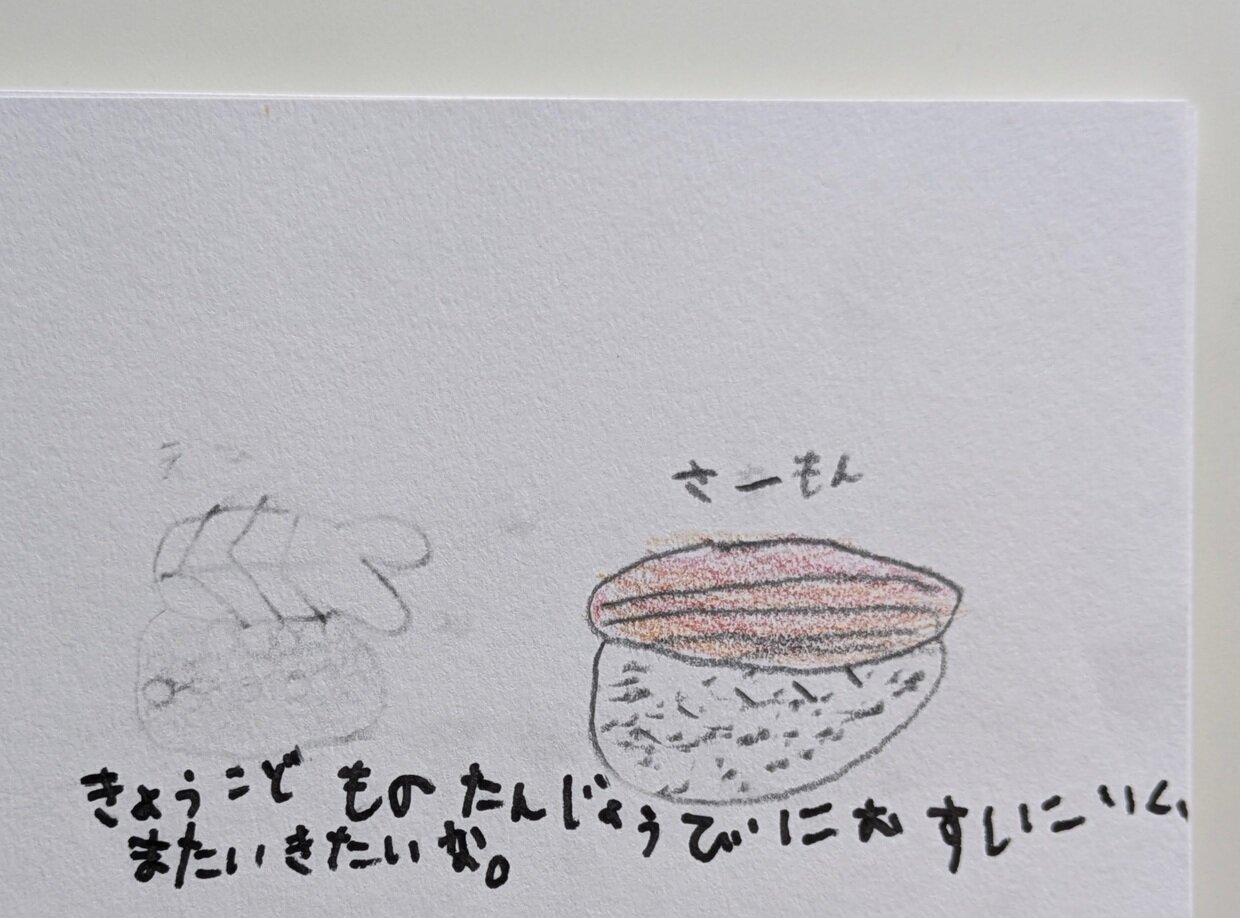 さーもん
きょうこどものたんじょうびにおすしにいく、
またいきたいな。